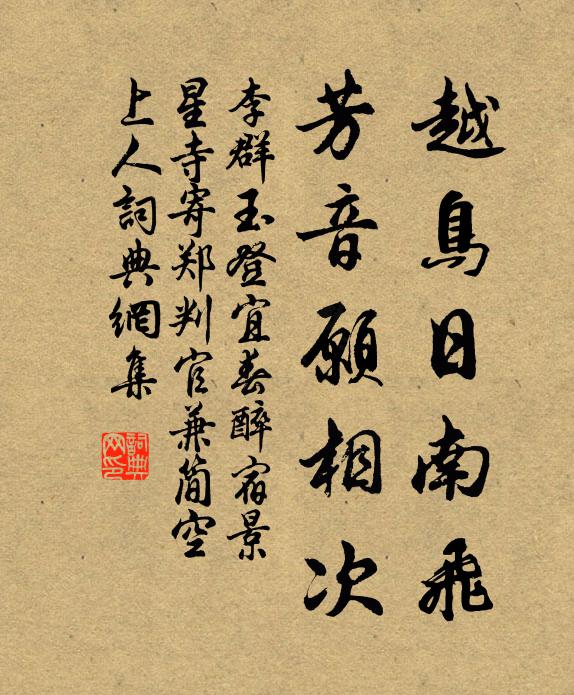 越鳥日南飛
芳音願相次
李群玉登宜春醉宿景
星寺寄郑判官兼简空
上人詞典網集
詞典网印